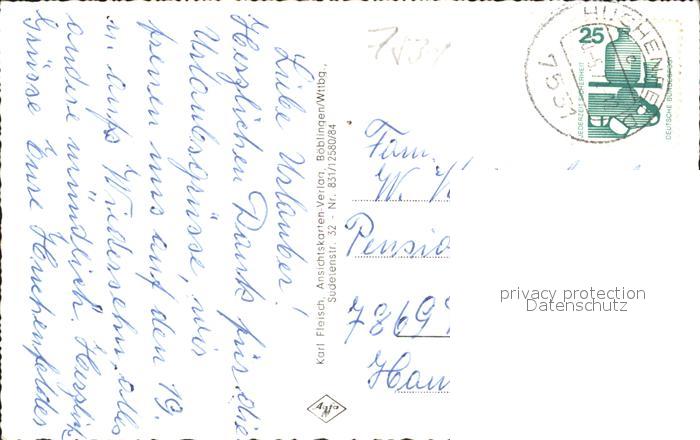 Liebe Urlauber!
Herzlichen Dank für die
Urlaubsgrüsse, wir
freuen uns auf den 19.
u. aufs Wiedersehn, alles
andere mündlich. Herzlich
Grüsse Eure Huchenfelder
Karl Fleisch, Ansichtskarten-Verlag, Böblingen/Wttbg.,
Sudetenstr. 32 - Nr. 831/12580/84
Agfa
HUCHENFELD
7531
25
JEDERZEIT SICHERHEIT
DEUTSCHE BUNDESPOST
Fam.
W.
Pensio
7869
Hau
privacy protection
Datenschutz